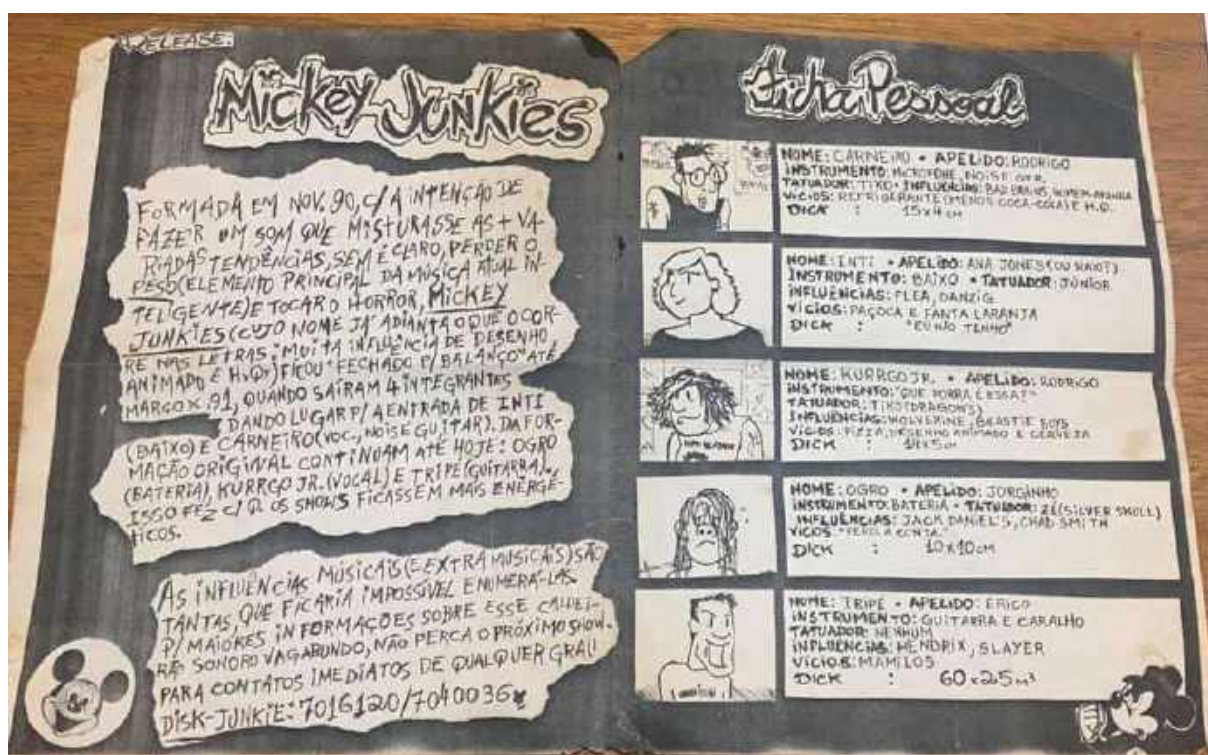 RELEASE.
Mickey Junkies
FORMADA EM NOV. 90, C/ A INTENÇÃO DE
FAZER UM SOM QUE MISTURASSE AS + VA-
RIADAS TENDÊNCIAS, SEM É CLARO, PERDER O
PESO (ELEMENTO PRINCIPAL DA MÚSICA ATUAL IN-
TELIGENTE) E TOCAR O HORROR, MICKEY
JUNKIES (CUJO NOME JÁ ADIANTA O QUE OCOR-
RE NAS LETRAS: MUITA INFLUÊNCIA DE DESENHO
ANIMADO E H.Qs) FICOU "FECHADO P/ BALANÇO" ATÉ
MARÇO 91, QUANDO SAÍRAM 4 INTEGRANTES
DANDO LUGAR P/ A ENTRADA DE INTI
(BAIXO) E CARNEIRO (VOC., NOISE GUITAR). DA FOR-
MAÇÃO ORIGINAL CONTINUAM ATÉ HOJE: OGRO
(BATERIA), KURRGO JR. (VOCAL) E TRIPÉ (GUITARRA).
ISSO FEZ C/ Q. OS SHOWS FICASSEM MAIS ENERGÉ-
TICOS.
AS INFLUÊNCIAS MUSICAIS (E EXTRA MUSICAIS) SÃO
TANTAS, QUE FICARIA IMPOSSÍVEL ENUMERÁ-LAS.
P/ MAIORES INFORMAÇÕES SOBRE ESSE CALDEI-
RÃO SONORO VAGABUNDO, NÃO PERCA O PRÓXIMO SHOW.
PARA CONTATOS IMEDIATOS DE QUALQUER GRAU
DISK-JUNKIE: 7016120/7040036
Ficha Pessoal
NOME: CARNEIRO • APELIDO: RODRIGO
INSTRUMENTO: MICROFONE, NOISE GTR.
TATUADOR: TIKO • INFLUÊNCIAS: BAD BRAINS, HOMEM-ARANHA
VÍCIOS: REFRIGERANTE (MENOS COCA-COLA) E H.Q.
DICK : 15x4 CM
NOME: INTI • APELIDO: ANA JONES (OU RAIO?)
INSTRUMENTO: BAIXO • TATUADOR: JÚNIOR
INFLUÊNCIAS: FLEA, DANZIG
VÍCIOS: PAÇOCA E FANTA LARANJA
DICK : "EU NÃO TENHO"
NOME: KURRGO JR. • APELIDO: RODRIGO
INSTRUMENTO: "QUE PORRA É ESSA?"
TATUADOR: TIKO (DRAGON'S)
INFLUÊNCIAS: WOLVERINE, BEASTIE BOYS
VÍCIOS: PIZZA, DESENHO ANIMADO E CERVEJA
DICK : x5 CM
NOME: OGRO • APELIDO: JORGINHO
INSTRUMENTO: BATERIA • TATUADOR: ZÉ (SILVER SKULL)
INFLUÊNCIAS: JACK DANIEL'S, CHAD SMITH
VÍCIOS: "PERDI A CONTA"
DICK : 10x10 CM
NOME: TRIPÉ • APELIDO: ERICO
INSTRUMENTO: GUITARRA E CARALHO
TATUADOR: NENHUM
INFLUÊNCIAS: HENDRIX, SLAYER
VÍCIOS: MAMILOS
DICK : 60x25 M³